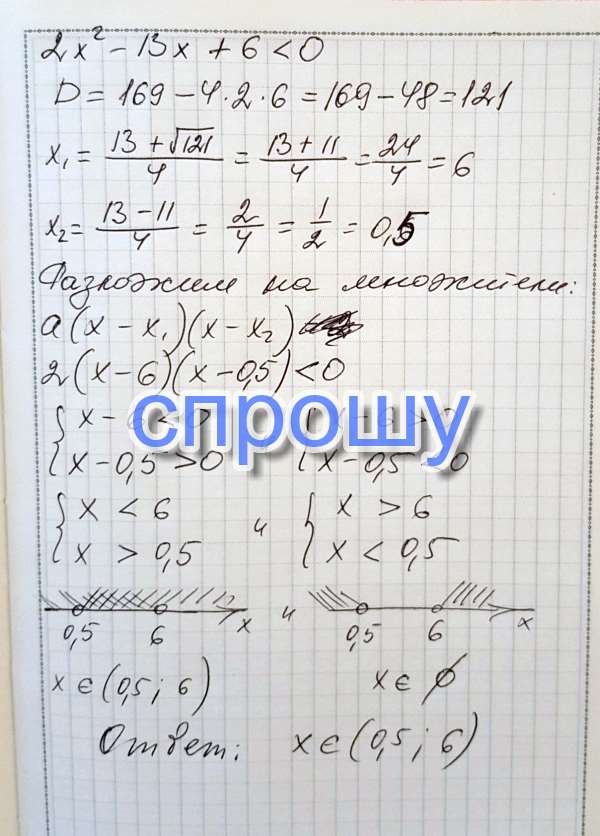 2x² - 13x + 6 < 0
D = 169 - 4·2·6 = 169 - 48 = 121
x₁ = (13 + √121)/4 = (13 + 11)/4 = 24/4 = 6
x₂ = (13 - 11)/4 = 2/4 = 1/2 = 0,5
Разложим на множители:
a(x - x₁)(x - x₂)
2(x - 6)(x - 0,5) < 0
спрошу
{ x - 6 < 0
{ x - 0,5 > 0 { x - 0,5
{ x < 6 и { x > 6
{ x > 0,5 { x < 0,5
0,5 6 x и 0,5 6 x
x ∈ (0,5; 6) x ∈ ∅
Ответ: x ∈ (0,5; 6)